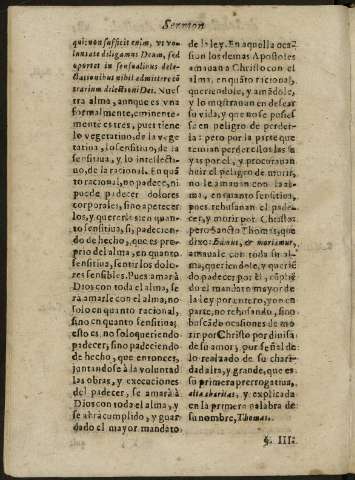 Sermon
qui: non sufficit enim, vt vo-
luntate diligamus Deum, sed
oportet in sensualibus dele-
ctationibus nihil admittere cõ
trarium dilectioni Dei. Nues
tra alma, aunque es vna
formalmente, eminente-
mente es tres, pues tiene
lo vegetatiuo, de la vege
tatiua, lo sensitiuo, de la
sensitiua, y lo intellecti-
uo, de la racional. En quã
to racional, no padece, ni
puede padecer dolores
corporales, sino apetecer
los, y quererlos en quan-
to sensitiua, si, padecien-
do de hecho, que es pro-
prio del alma, en quanto
sensitiua, sentir los dolo-
res sensibles. Pues amar à
Dios con toda el alma, se
rà amarle con el alma, no
solo en quanto racional,
sino en quanto sensitiua;
esto es, no solo queriendo
padecer, sino padeciendo
de hecho, que entonces,
juntandose à la voluntad
las obras, y execuciones
del padecer, se amarà à
Dios con toda el alma, y
se abrà cumplido, y guar-
dado el mayor mandato
de la ley. En aquella oca-
sion los demas Apostoles
amauan a Christo con el
alma, en quãto ricional,
queriendole, y amãdole,
y lo mostrauan en desear
su vida, y que no se pusies
se en peligro de perder-
la: pero por la parte que
temian perder estos las su
yas por el, y procurauan
huir el peligro de morir,
no le amauan con la al-
ma, en quanto sensitiua,
pues rehusauan el pade-
cer, y morir por Christo:
pero Sancto Thomas, que
dixo: Eamus, & moriamur,
amauale con toda su al-
ma, queriendole, y queriẽ
do padecer por èl, cũpliẽ
do el mandato mayor de
la ley por entero, y no en
parte, no rehusando, sino
buscãdo ocasiones de mo
rir por Christo por diuisa
de su amor, y por señal de
lo realzado de su chari-
dad alta, y grande, que es
su primera prerrogatiua,
alta charitas, y explicada
en la primera palabra de
su nombre, Thomas.
§. III: